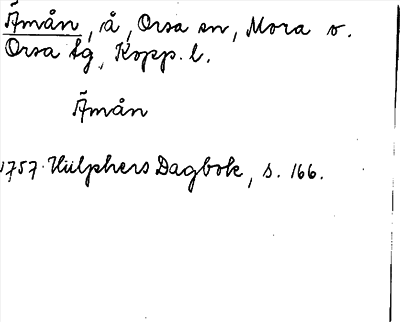 Ämån, å, Orsa sn, Mora o.
Orsa tg, Kopp. l.
Ämån
1757. Hülphers Dagbok, s. 166.